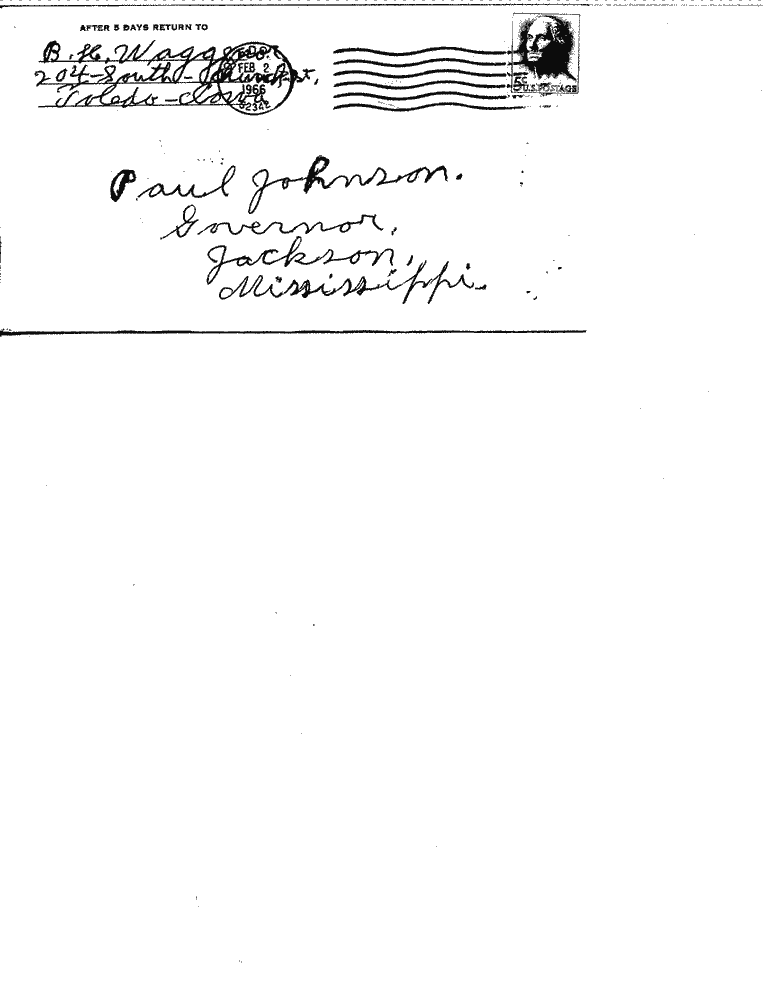 AFTER 5 DAYS RETURN TO
B. H. Wagg
204-South-Church St,
Toledo-Iowa
FEB 2
1966
5c
U.S. POSTAGE
Paul Johnson.
Governor,
Jackson,
Mississippi.